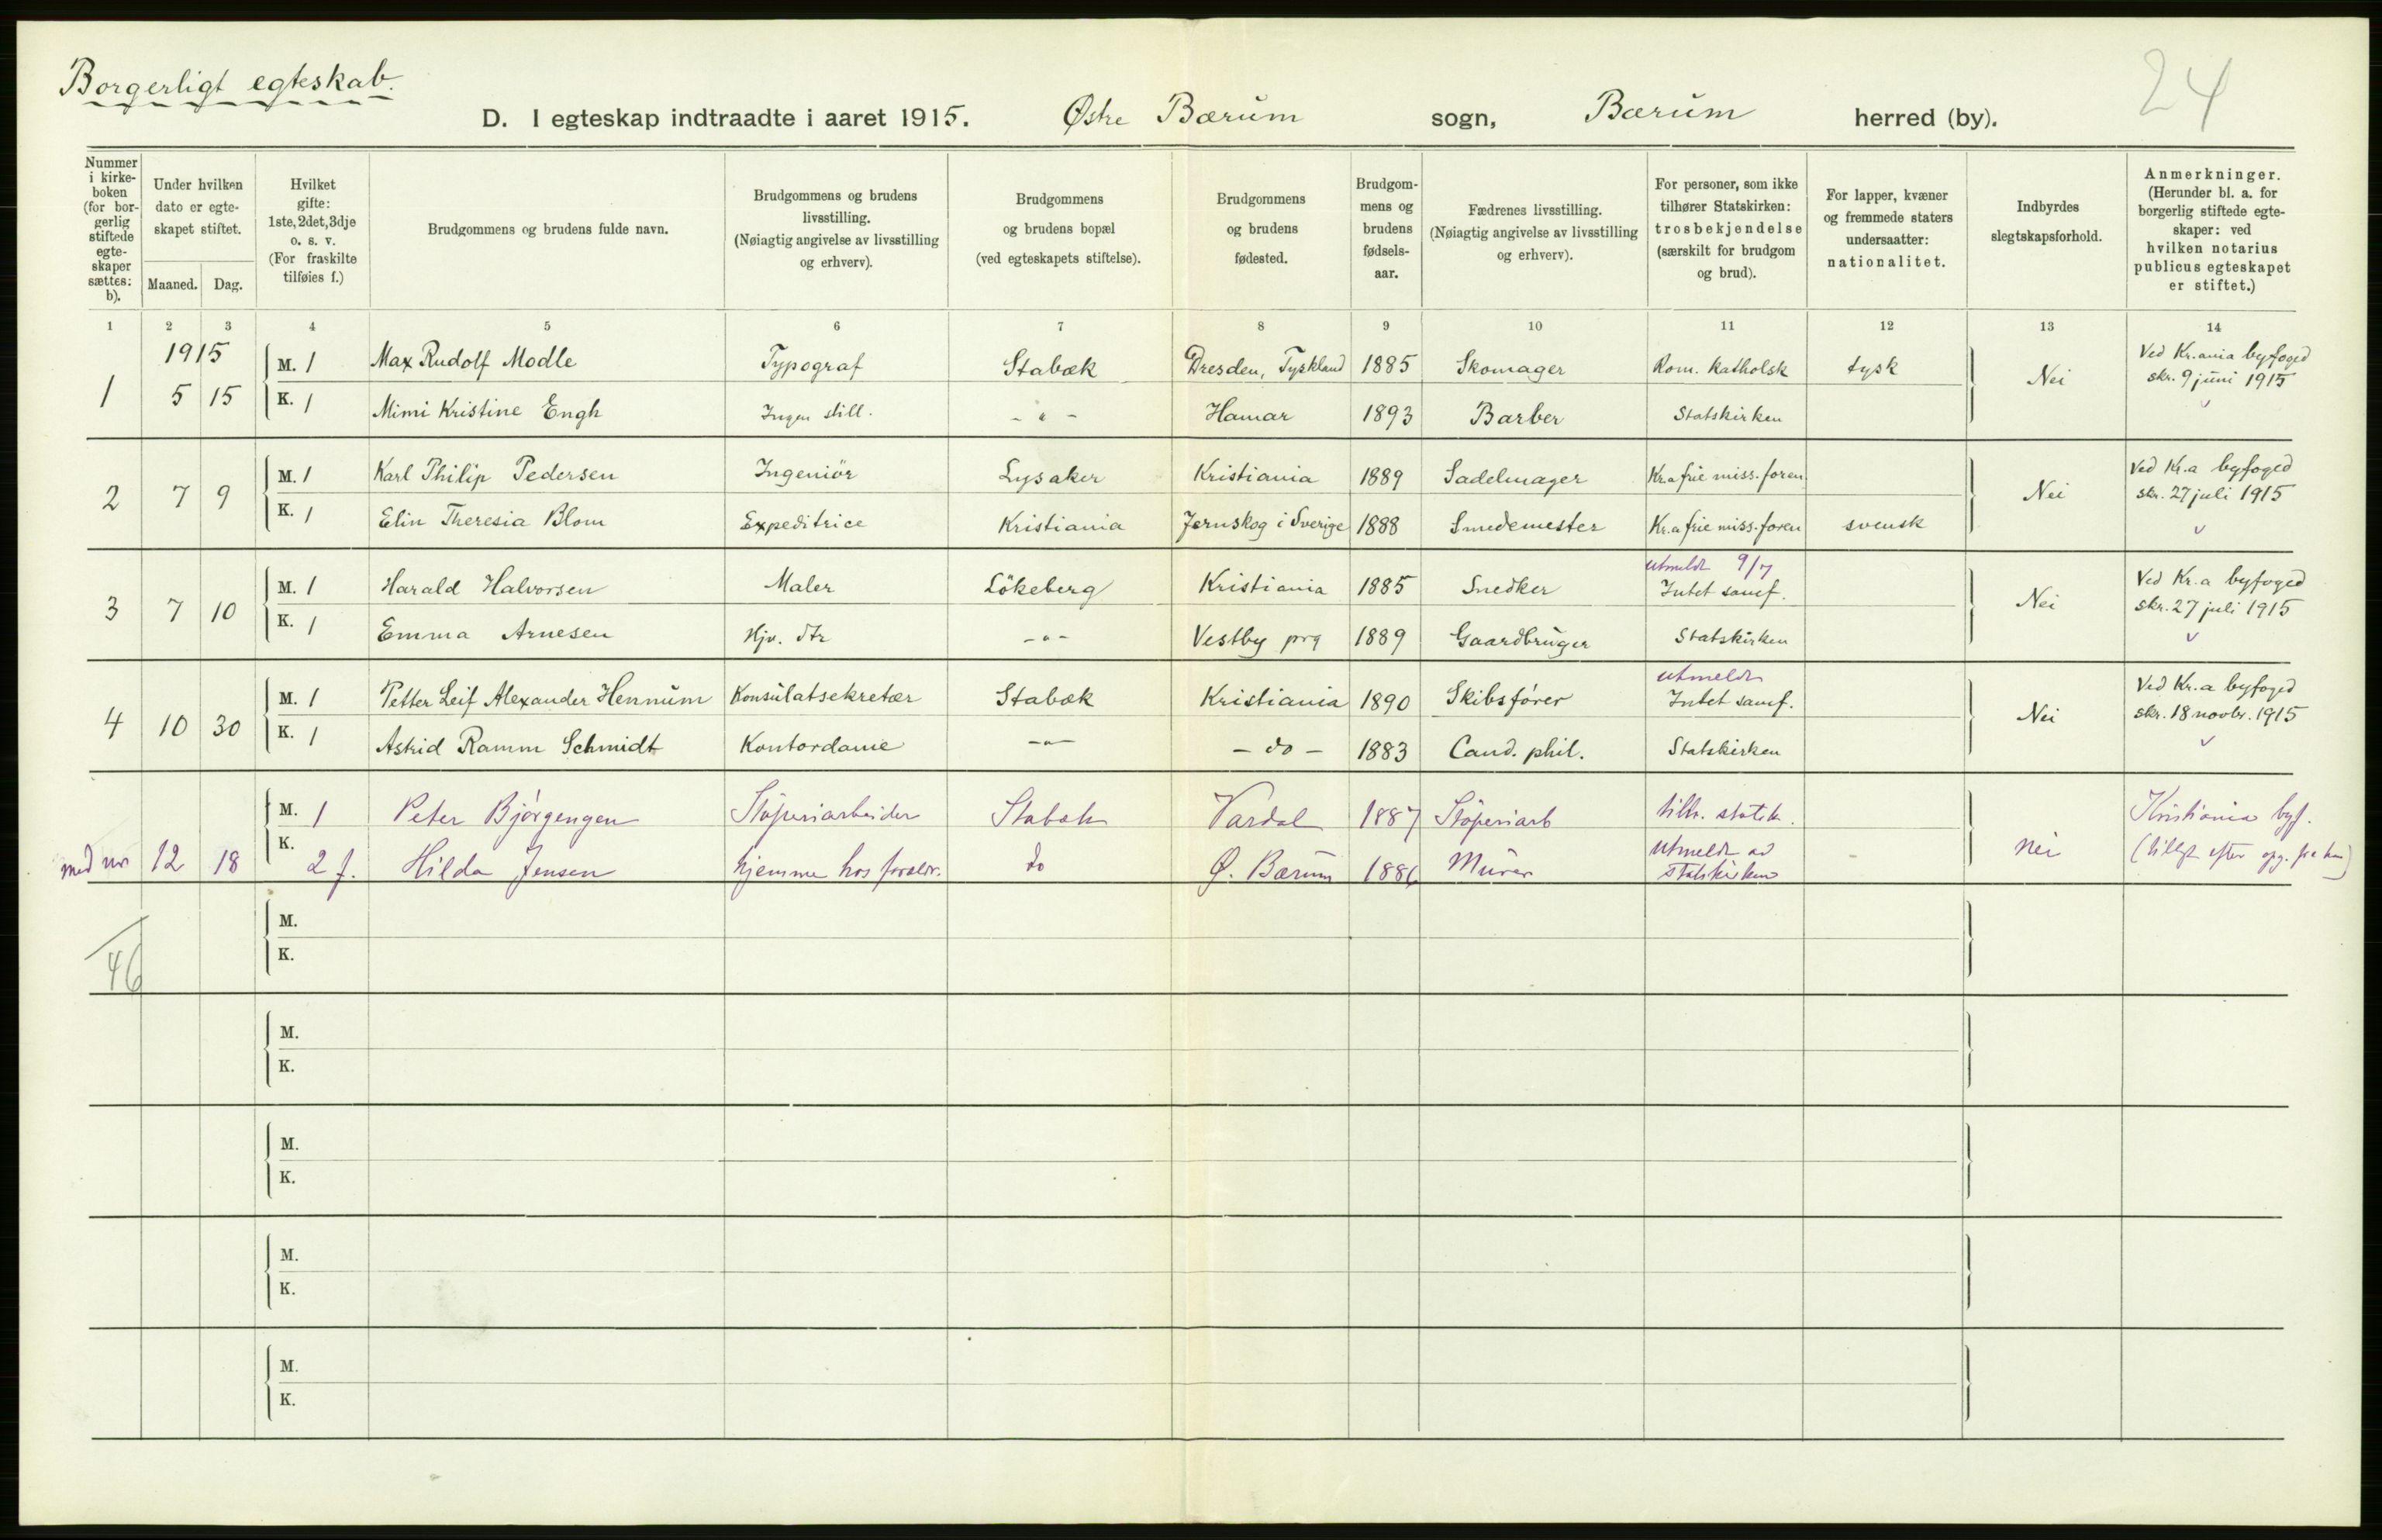 Borgerligt egteskab.
24
D. I egteskap indtraadte i aaret 1915. Østre Bærum sogn, Bærum herred (by).
Nummer i kirkeboken (for borgerlig stiftede egteskaper sættes: b).
Under hvilken dato er egteskapet stiftet.
Maaned. Dag.
Hvilket gifte: 1ste, 2det, 3dje o. s. v. (For fraskilte tilføies f.)
Brudgommens og brudens fulde navn.
Brudgommens og brudens livsstilling. (Nøiagtig angivelse av livsstilling og erhverv).
Brudgommens og brudens bopæl (ved egteskapets stiftelse).
Brudgommens og brudens fødested.
Brudgommens og brudens fødselsaar.
Fædrenes livsstilling. (Nøiagtig angivelse av livsstilling og erhverv).
For personer, som ikke tilhører Statskirken: trosbekjendelse (særskilt for brudgom og brud).
For lapper, kvæner og fremmede staters undersaatter: nationalitet.
Indbyrdes slegtskapsforhold.
Anmerkninger. (Herunder bl. a. for borgerlig stiftede egteskaper: ved hvilken notarius publicus egteskapet er stiftet.)
1 2 3 4 5 6 7 8 9 10 11 12 13 14
1915
1 5 15 M. 1 Max Rudolf Modle Typograf Stabæk Dresden, Tyskland 1885 Skomager Rom. katholsk tysk Nei Ved Kr.ania byfoged skr. 9 juni 1915
K. 1 Mimi Kristine Engh Ingen still. - " - Hamar 1893 Barber Statskirken
2 7 9 M. 1 Karl Philip Pedersen Ingeniör Lysaker Kristiania 1889 Sadelmager Kr.a frie miss.foren. Nei Ved Kr.a byfoged skr. 27 juli 1915
K. 1 Elin Theresia Blom Expeditrice Kristiania Jernskog i Sverige 1888 Smedemester Kr.a frie miss.foren svensk
utmeldt 9/7
3 7 10 M. 1 Harald Halvorsen Maler Lökeberg Kristiania 1885 Snedker Intet samf. Nei Ved Kr.a byfoged skr. 27 juli 1915
K. 1 Emma Arnesen Hjv. dtr - " - Vestby prg 1889 Gaardbruger Statskirken
utmeldt
4 10 30 M. 1 Petter Leif Alexander Hennum Konsulatsekretær Stabæk Kristiania 1890 Skibsfører Intet samf. Nei Ved Kr.a byfoged skr. 18 novbr. 1915
K. 1 Astrid Ramm Schmidt Kontordame - " - - do - 1883 Cand. phil. Statskirken
M. 1 Peter Bjørgengen Støperiarbeider Stabæk Vardal 1887 Støperiarb tilh. statsk. Kristiania byf.
12 18 K. 2 f. Hilda Jensen hjemme hos forældr. do Ø. Bærum 1886 Murer utmeldt av statskirken - nei
46
M.
K.
M.
K.
M.
K.
M.
K.
M.
K.